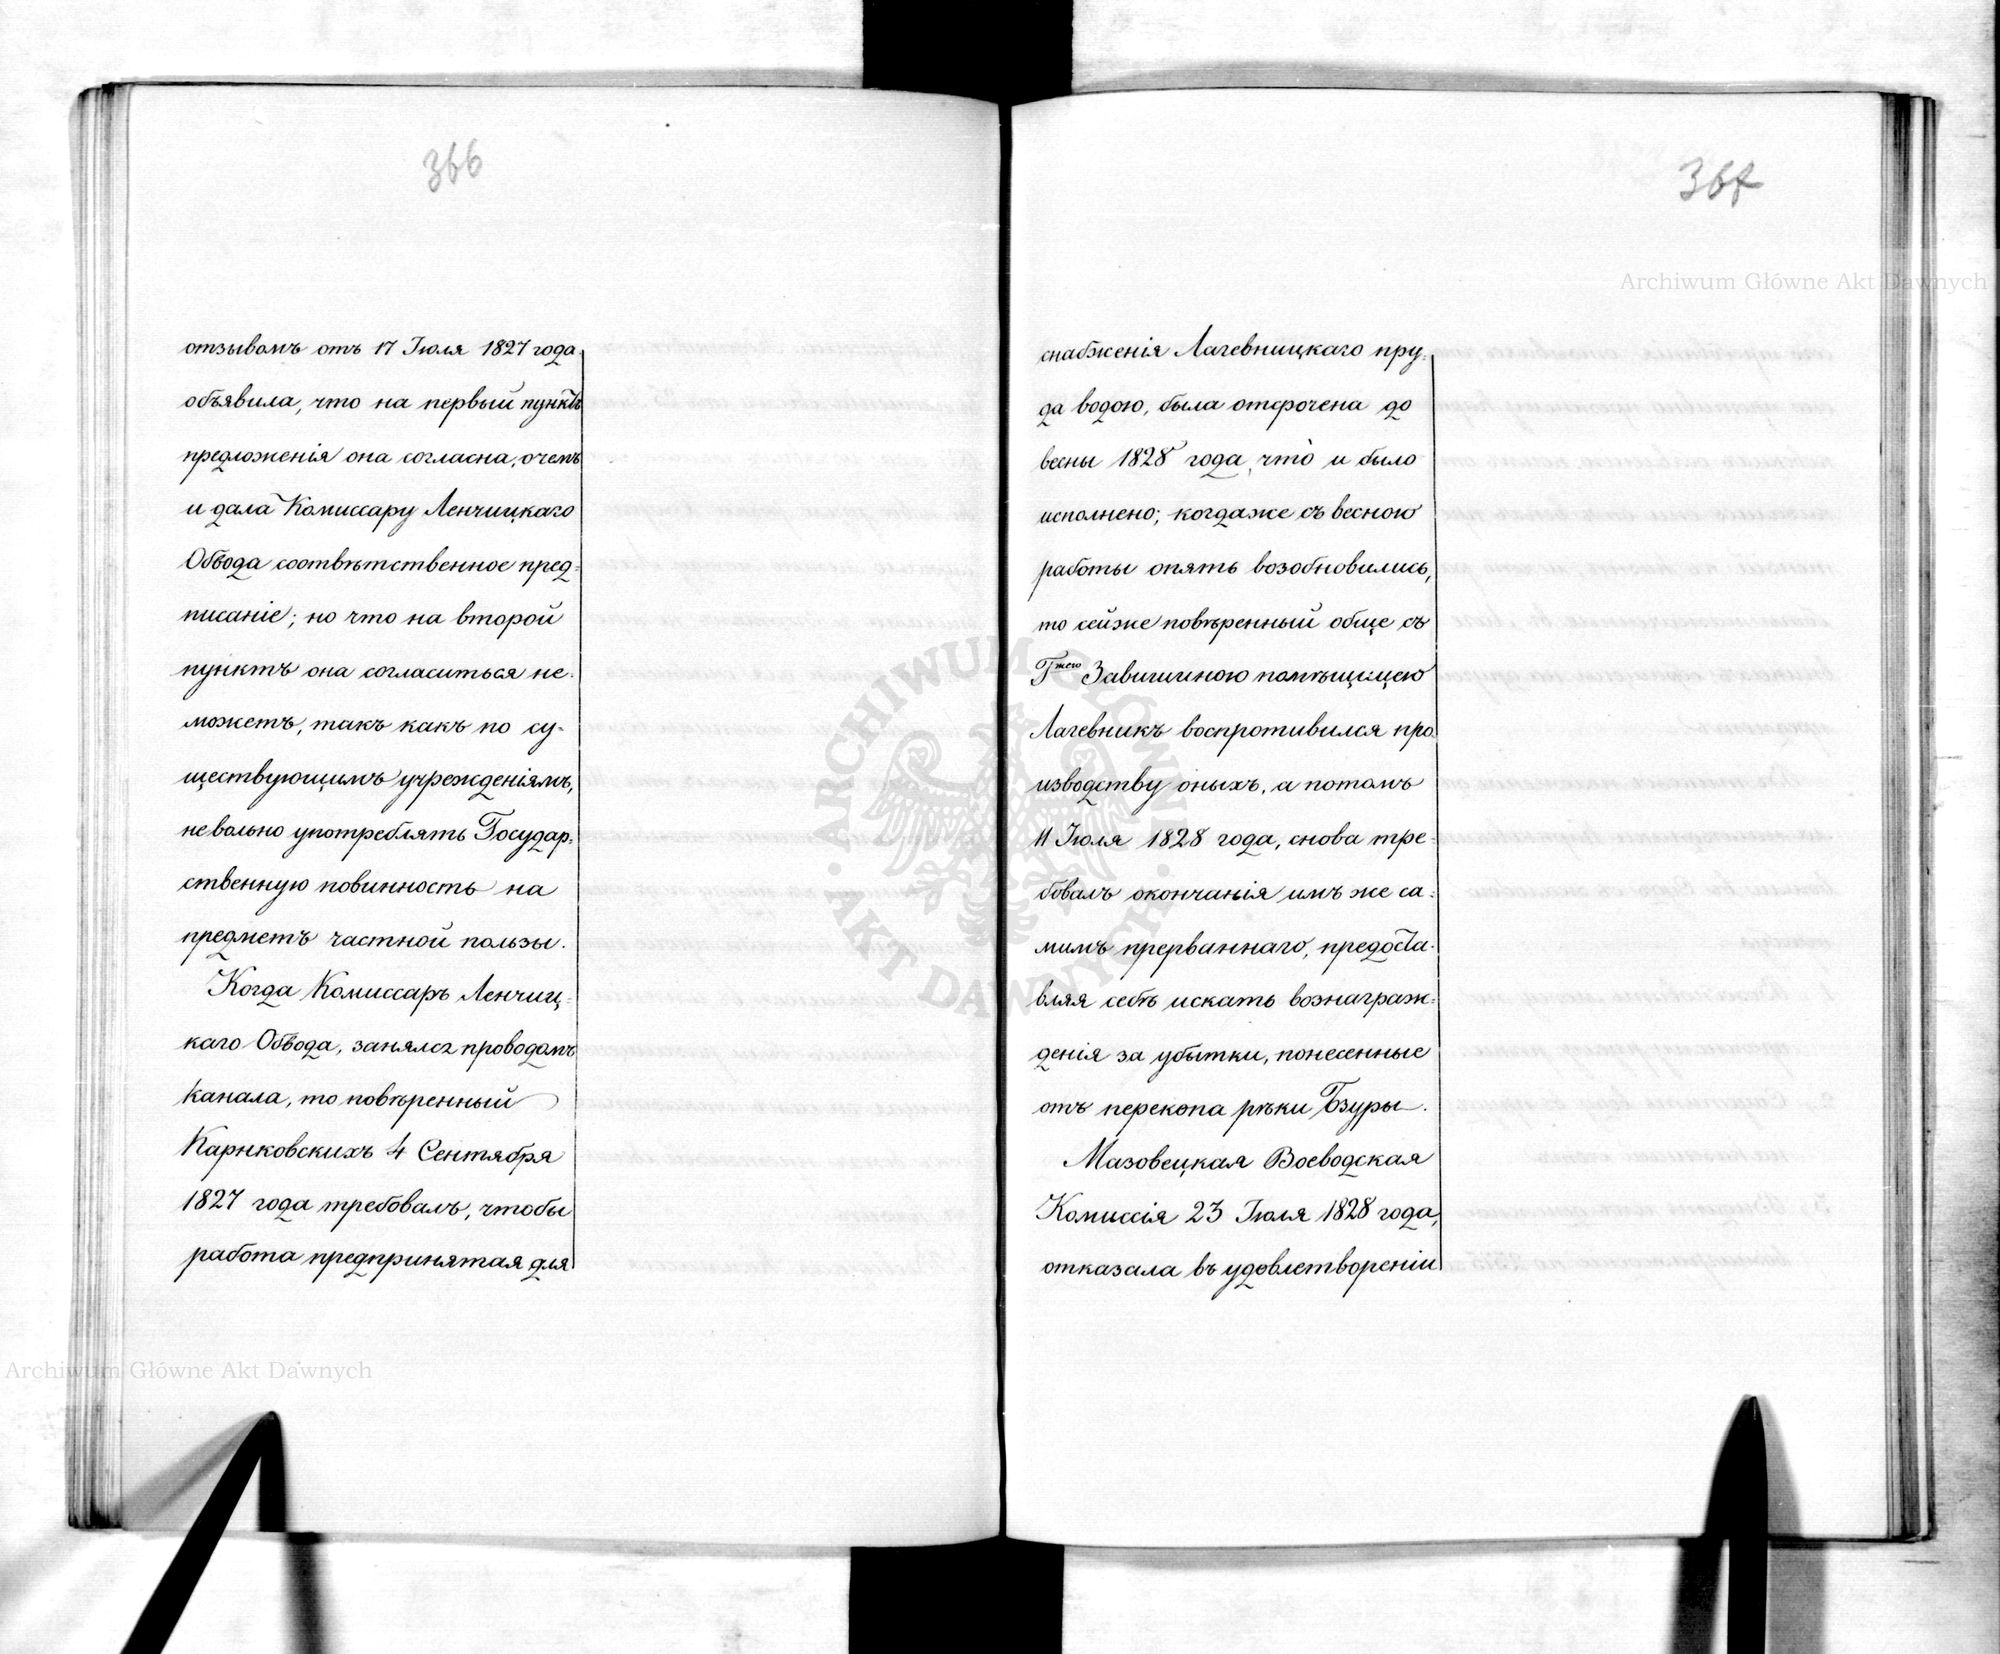 366
отзывомъ отъ 17 Іюля 1827 года
объявила, что на первый пунктъ
предложенія она согласна, о чемъ
и дала Комиссару Ленчицкаго
Обвода соотвѣтственное пред=
писаніе; но что на второй
пунктъ она согласиться не
можетъ, такъ какъ по су=
ществующимъ учрежденіямъ,
невольно употреблять Государ=
ственную повинность на
предметъ частной пользы.
Когда Комиссаръ Ленчиц=
каго Обвода, занялся проводомъ
канала, то повѣренный
Карнковскихъ 4 Сентября
1827 года требовалъ, чтобы
работа предпринятая для
367
снабженія Лагевницкаго пру=
да водою, была отсрочена до
весны 1828 года, что и было
исполнено; когдаже съ весною
работы опять возобновились,
то сейже повѣренный обще съ
Гжею Завишиною помѣщицею
Лагевникъ воспротивился про
изводству оныхъ, а потомъ
11 Іюля 1828 года, снова тре=
бовалъ окончанія имъ же са=
мимъ прерваннаго, предоста=
вляя себѣ искать вознаграж=
денія за убытки, понесенные
отъ перекопа рѣки Бзуры.
Мазовецкая Воеводская
Комиссія 23 Іюля 1828 года,
отказала въ удовлетвореніи
Archiwum Główne Akt Dawnych
Archiwum Główne Akt Dawnych
ARCHIWUM GŁÓWNE · AKT DAWNYCH ·